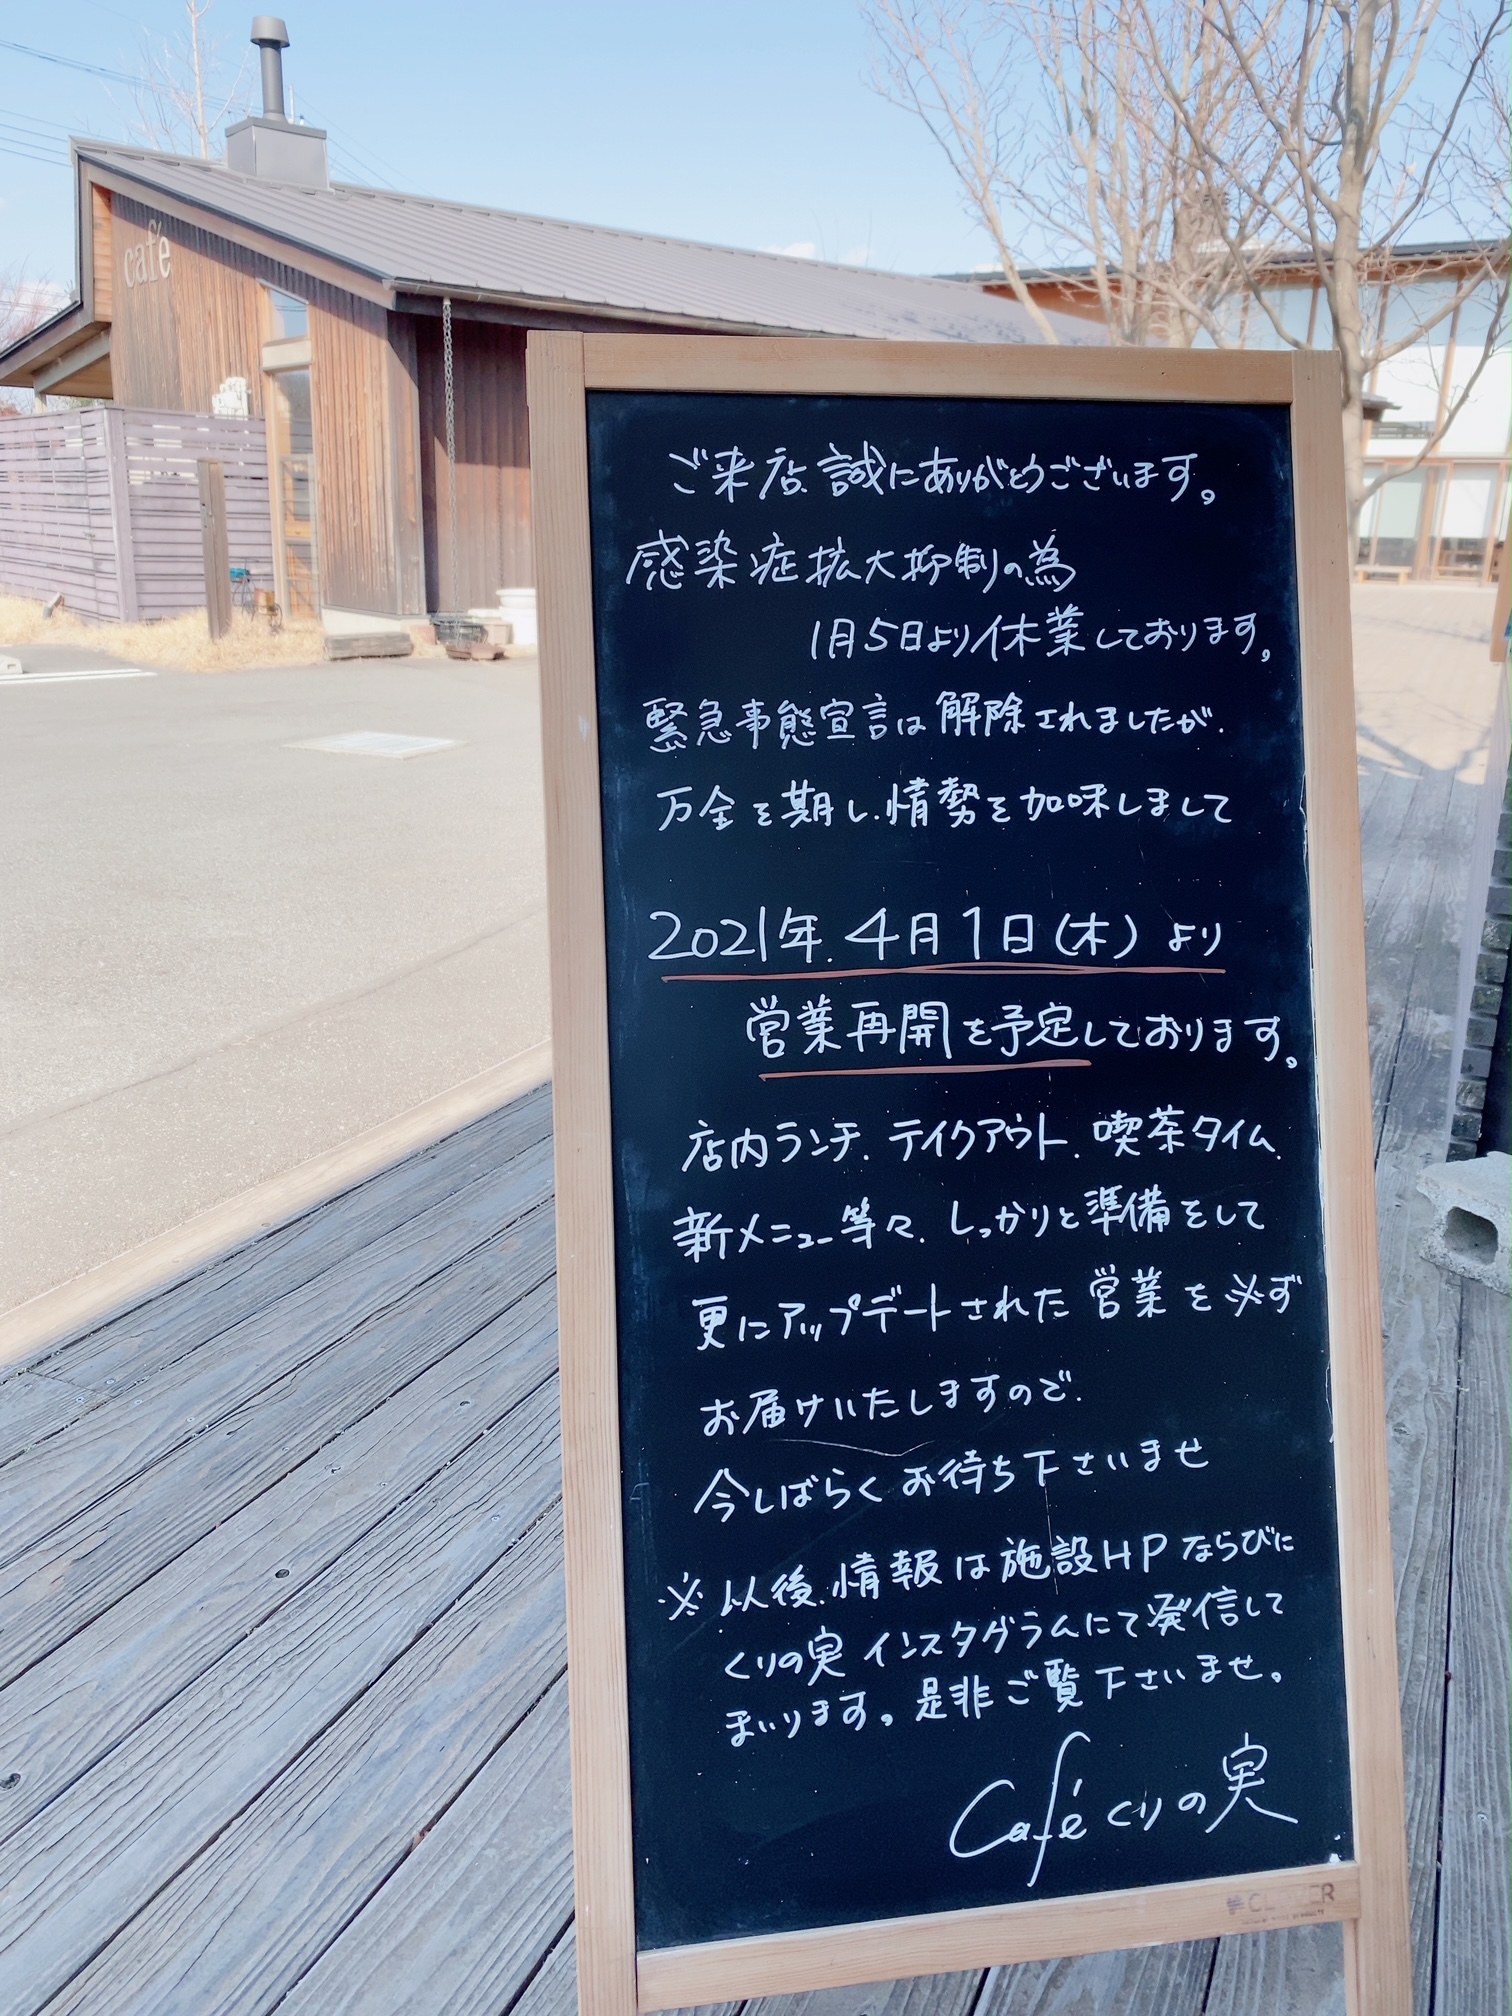 café
ご来店、誠にありがとうございます。
感染症拡大抑制の為
1月5日より休業しております。
緊急事態宣言は解除されましたが、
万全を期し、情勢を加味しまして
2021年、4月1日(木)より
営業再開を予定しております。
店内ランチ、テイクアウト、喫茶タイム、
新メニュー等々、しっかりと準備をして
更にアップデートされた営業を必ず
お届けいたしますので、
今しばらくお待ち下さいませ
※以後、情報は施設HPならびに
くりの実インスタグラムにて発信して
まいります。是非ご覧下さいませ。
Caféくりの実